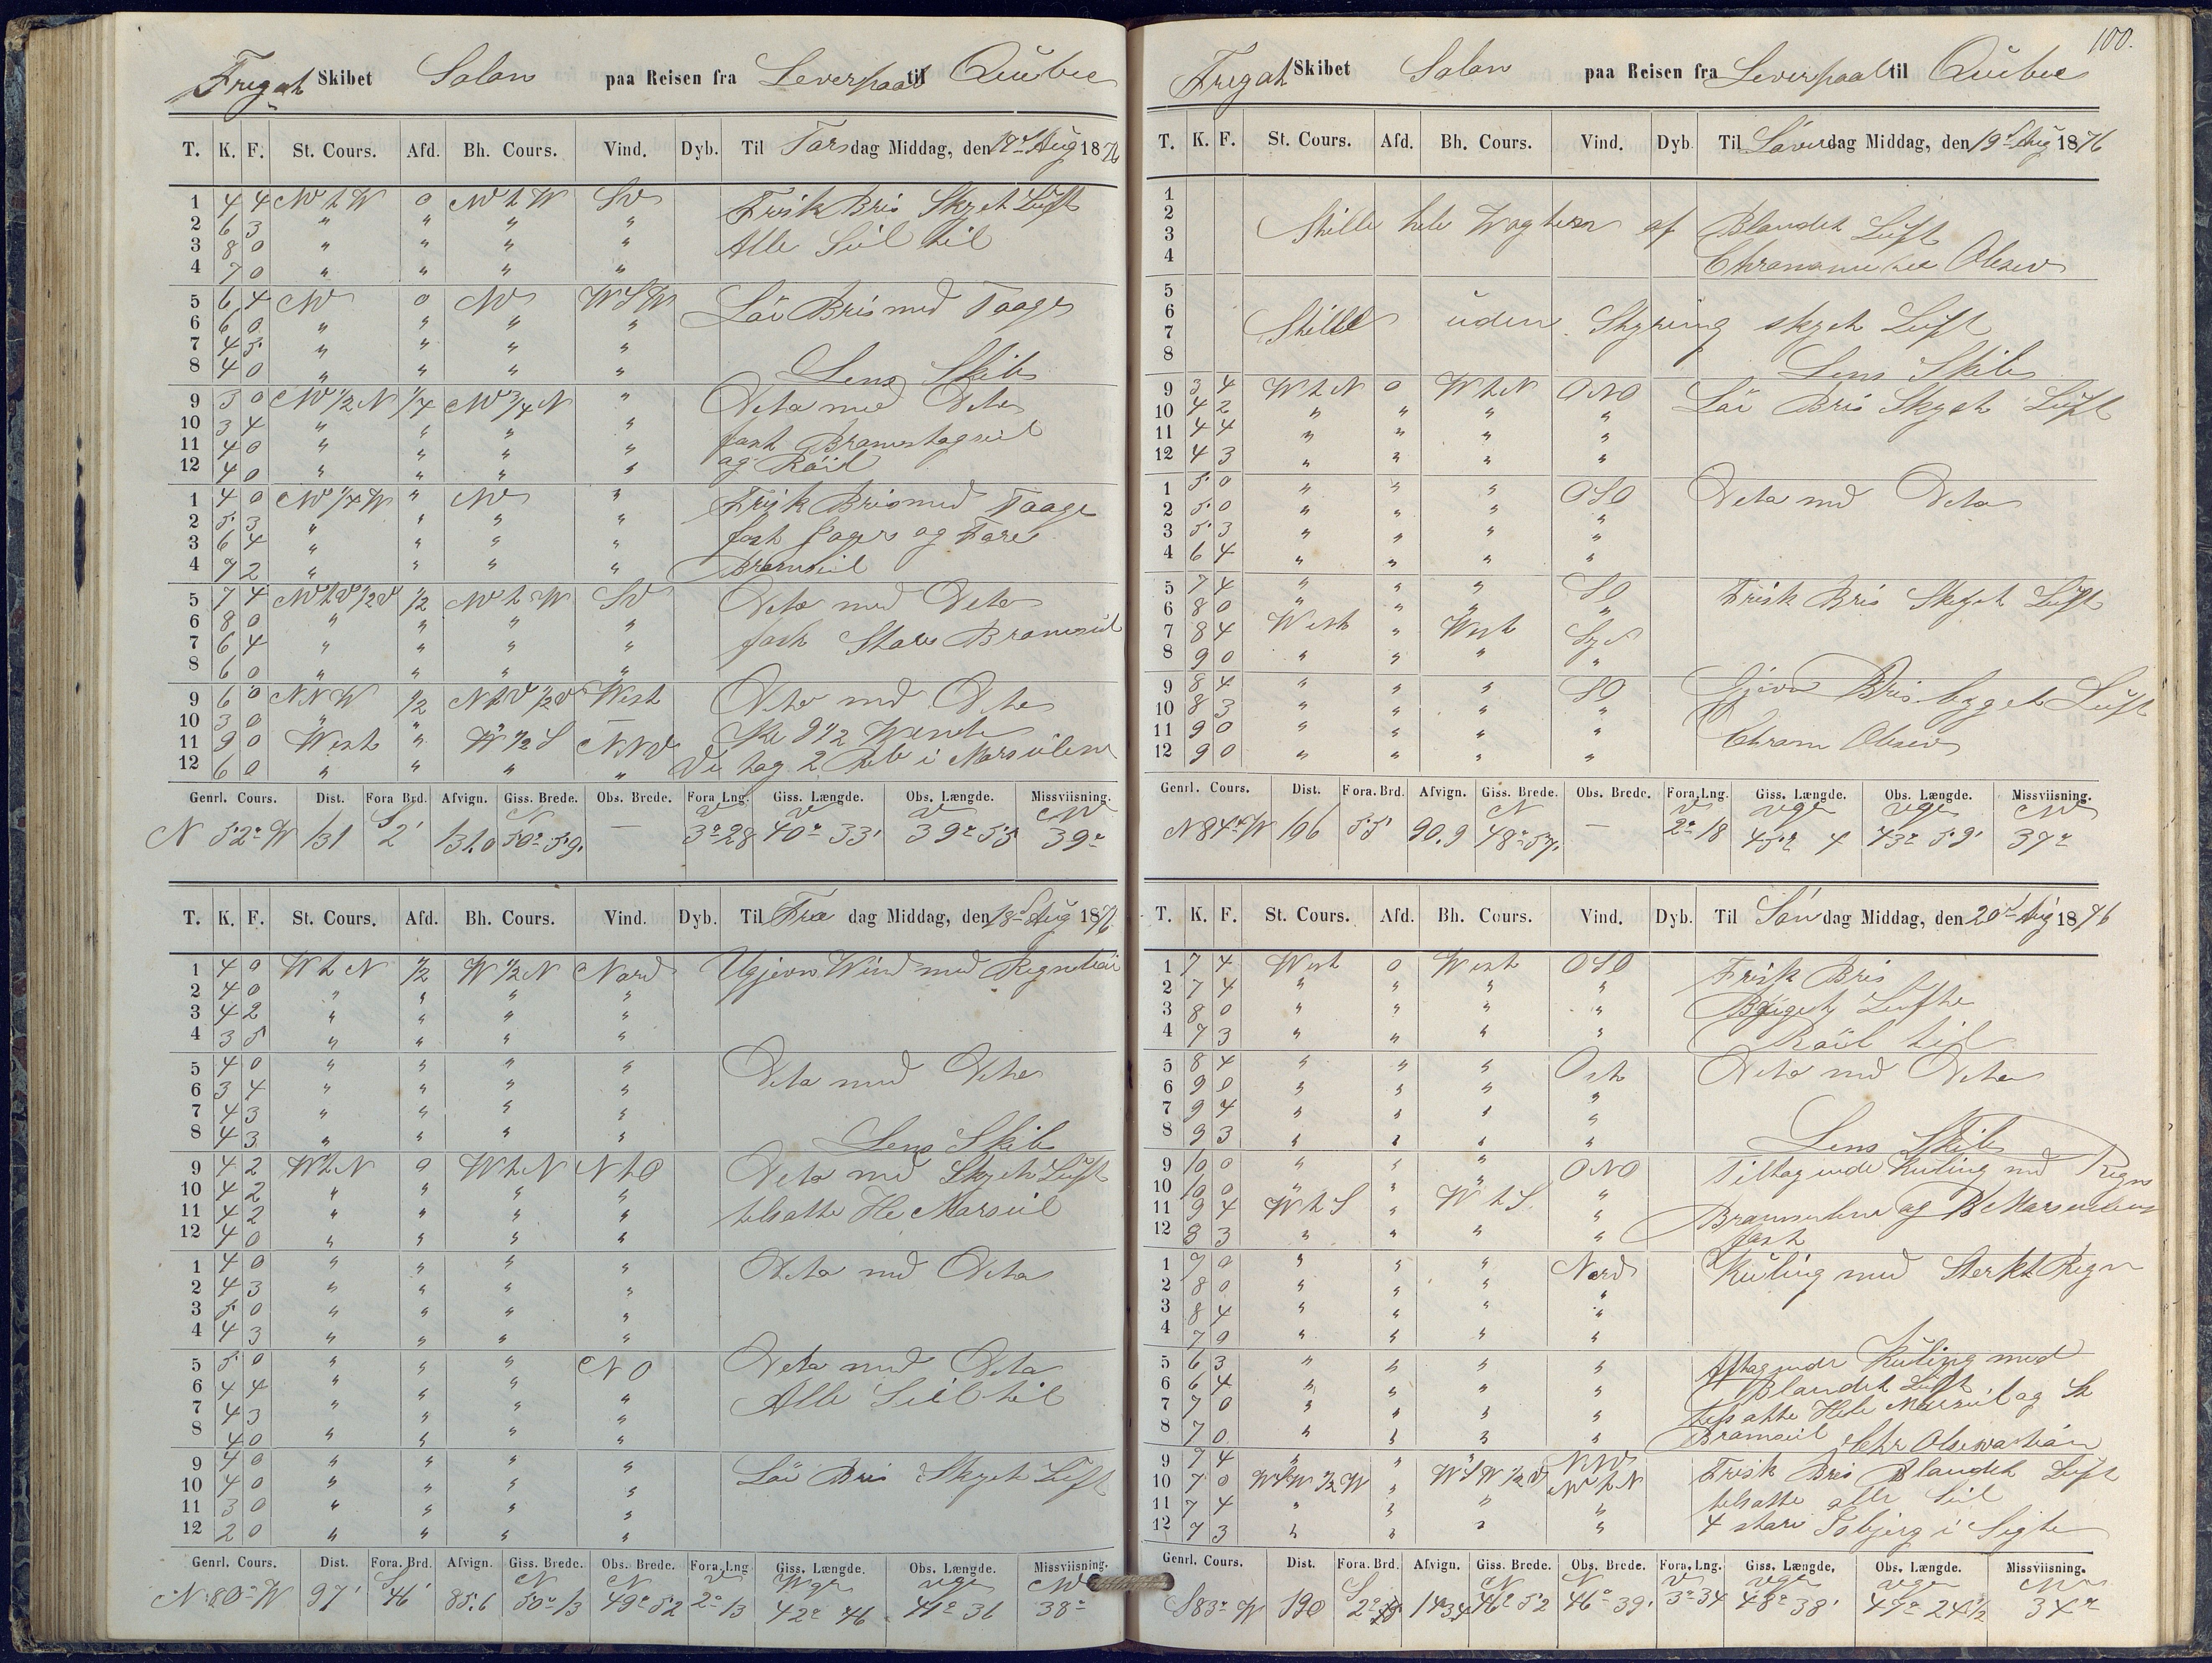 Fregat Skibet Solon paa Reisen fra Leverpaal til Quibec
T. K. F. St. Cours. Afd. Bh. Cours. Vind. Dyb. Til Torsdag Middag, den 17de Aug 1876
1 4 4 NV t W 0 NV t W SV Frisk Bris Skyet Luft
2 6 3 " " " "
3 8 0 " " " " Alle Seil til
4 7 0 " " " "
5 6 4 NV 0 NV WSW Löi Bris med Taage
6 6 0 " " " "
7 4 5 " " " "
8 4 0 " " " " Lens Skib
9 3 0 NV 1/2 N 1/4 NV 3/4 N " Deto med Deto
10 3 4 " " " "
11 4 0 " " " " fast Bramstagseil
12 4 0 " " " " og Röil
1 4 0 NV 1/4 W " NV " Frisk Bris med Taage
2 5 3 " " " "
3 6 4 " " " " fast Jager og Fore
4 7 2 " " " " Bramseil
5 7 4 NV t V 1/2 V 1/2 NV t W SV Deto med Deto
6 8 0 " " " "
7 6 4 " " " " fast Store Bramseil
8 6 0 " " " "
9 6 0 NNW 1/2 N t V 1/2 V West Deto med Deto
10 3 0 " " " Kl 9 1/2 Vendt
11 9 0 West " W 1/2 S NNV
12 6 0 " " " " Vi tog 2 Reb i Marsseilene
Genrl. Cours. Dist. Fora Brd. Afvign. Giss. Brede. Obs. Brede. Fora Lng. Giss. Længde. Obs. Længde. Missviisning.
S N V V V NV
N 52° W 131 2' 131.0 50° 59' — 3° 28 40° 33' 39° 55 39°
T. K. F. St. Cours. Afd. Bh. Cours. Vind. Dyb. Til Fredag Middag, den 18de Aug 1876
1 4 0 W t N 1/2 W 1/2 N Nord Ugjevn Wind med Regnbÿi
2 4 0 " " " "
3 4 2 " " " "
4 3 5 " " " "
5 4 0 " " " " Deto med Deto
6 3 4 " " " "
7 4 3 " " " "
8 4 3 " " " " Lens Skib
9 4 2 W t N 0 W t N N t O Deto med Skyet Luft
10 4 2 " " " "
11 4 2 " " " " tilsatte Hele Marsseil
12 4 0 " " " "
1 4 0 " " " " Deto med Deto
2 4 3 " " " "
3 5 0 " " " "
4 4 3 " " " "
5 5 0 " " " NO Deto med Deto
6 4 4 " " " " Alle Seil til
7 4 3 " " " "
8 4 0 " " " "
9 4 0 " " " " Löi Bris Skyet Luft
10 4 0 " " " "
11 3 0 " " " "
12 2 0 " " " "
Genrl. Cours. Dist. Fora. Brd. Afvign. Giss. Brede. Obs. Brede. Fora. Lng. Giss. Længde. Obs. Længde. Missviisning.
S N N V Vgr Vgr NV
N 80° W 97' 46' 85.6 50° 13 49° 52 2° 13 42° 46 41° 36 38°
100.
Fregat Skibet Solon paa Reisen fra Leverpaal til Quibec
T. K. F. St. Cours. Afd. Bh. Cours. Vind. Dyb. Til Löverdag Middag, den 19de Aug 1876
1
2
3 Stille hele Wagten af Blandet Luft
4 Chronometer Obsev
5
6 Stille uden Styring skyet Luft
7
8 Lens Skib
9 3 4 W t N 0 W t N ONO Löi Bris Skyet Luft
10 4 2 " " " "
11 4 4 " " " "
12 4 3 " " " "
1 5 0 " " " OSO Deto med Deto
2 5 0 " " " "
3 5 3 " " " "
4 6 4 " " " "
5 7 4 " " " SO Frisk Bris Skyet Luft
6 8 0 " " " "
7 8 4 West " West Syd
8 9 0 " " " "
9 8 4 " " " SO Gjevn Bris bygget Luft
10 8 3 " " " "
11 9 0 " " " " Chrom Obsev
12 9 0 " " " "
Genrl. Cours. Dist. Fora. Brd. Afvign. Giss. Brede. Obs. Brede. Fora. Lng. Giss. Længde. Obs. Længde. Missviisning.
N V Vgr Vgr NV
N 84° W 106 55 90.9 48° 57' — 2° 18 45° 4 43° 59' 37°
T. K. F. St. Cours. Afd. Bh. Cours. Vind. Dyb. Til Söndag Middag, den 20de Aug 1876
1 7 4 West 0 West OSO Frisk Bris
2 7 4 " " " "
3 8 0 " " " " Byget Luft
4 7 3 " " " " Röil til
5 8 4 " " " Ost Deto med Deto
6 9 0 " " " "
7 9 4 " " " "
8 9 3 " " " " Lens Skib
9 10 0 " " " ONO Tiltagende Kuling med Regn
10 10 0 " " " "
11 9 4 W t S " W t S " Bramseilene og B Marsseilene
12 8 3 " " " " fast
1 7 0 " " " Nord Kuling med Sterkt Regn
2 8 0 " " " "
3 8 4 " " " "
4 7 0 " " " "
5 6 3 " " " " Aftagende Kuling med
6 6 4 " " " " Blandet Luft
7 7 0 " " " " tilsatte Hele Marsseil og St
8 7 0 " " " " Bramseil Chr Obsevastion
9 7 4 " " " NNV Frisk Bris Blandet Luft
10 7 0 WSW 1/2 W " WSW 1/2 V NV t N
11 7 4 " " " " tilsatte alle Seil
12 7 3 " " " " 4 store Isbjerg i Sigte
Genrl. Cours. Dist. Fora. Brd. Afvign. Giss. Brede. Obs. Brede. Fora. Lng. Giss. Længde. Obs. Længde. Missviisning.
S N N V Vgr Vgr NV
S 83° W 190 46° 52 46° 39' 3° 34 48° 38' 47° 24 1/2 34°